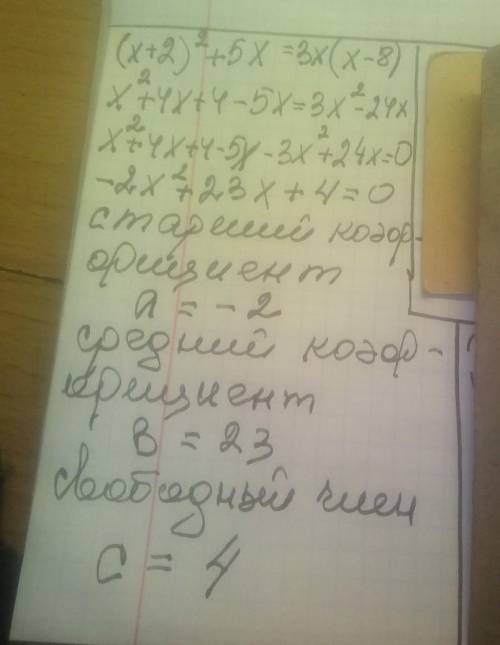 (x+2)²+5x=3x(x-8)
x²+4x+4-5x=3x²-24x
x²+4x+4-5x-3x²+24x=0
-2x²+23x+4=0
старший коэф-
фициент
a = -2
средний коэф-
фициент
в = 23
свободный член
c = 4